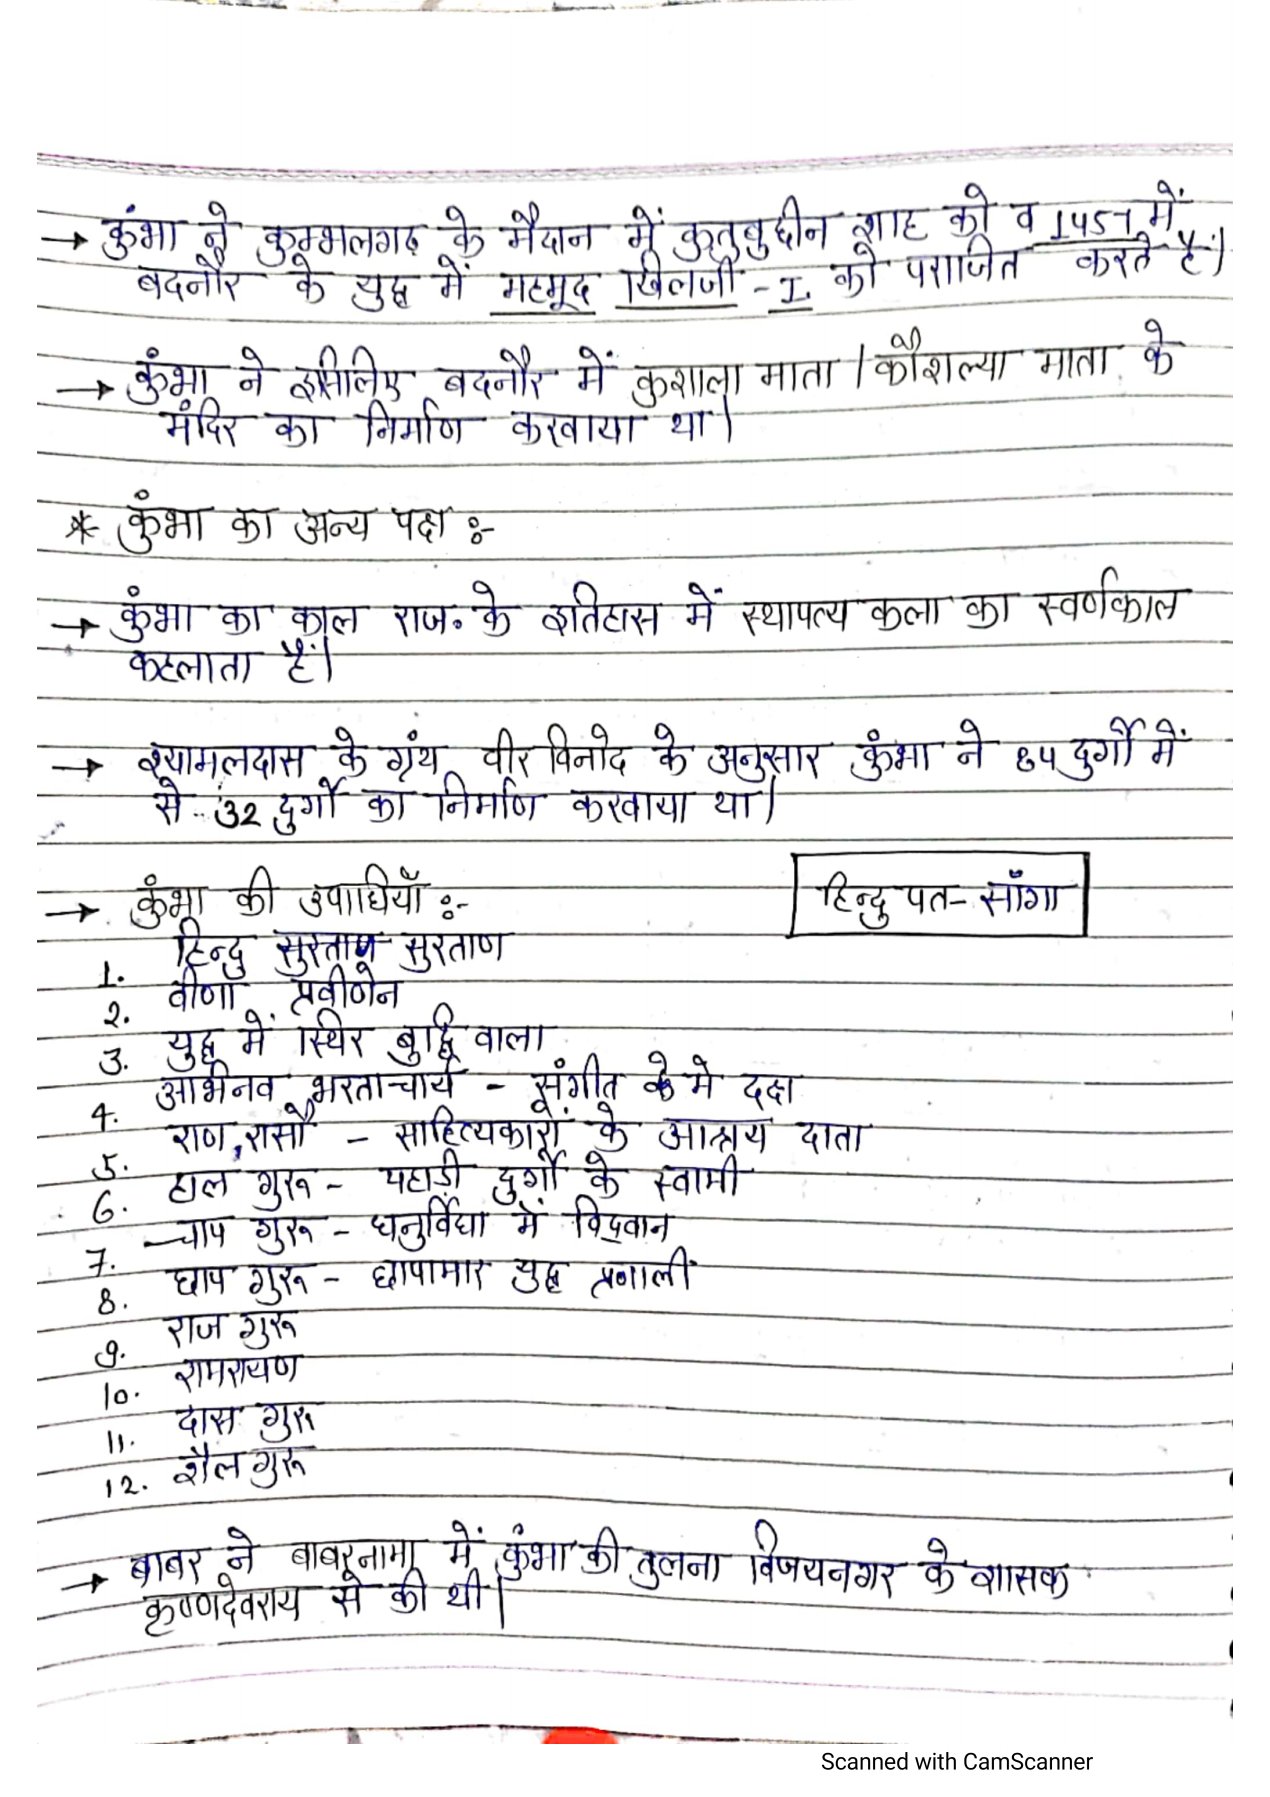 → कुंभा ने कुम्भलगढ़ के मैदान में कुतुबुद्दीन शाह को व 1457 में
बदनौर के युद्ध में महमूद खिलजी - I. को पराजित करते हैं।
→ कुंभा ने इसीलिए बदनौर में कुशाला माता / कौशल्या माता के
मंदिर का निर्माण करवाया था।
* कुंभा का अन्य पक्ष :-
→ कुंभा का काल राज. के इतिहास में स्थापत्य कला का स्वर्णकाल
कहलाता हैं।
→ श्यामलदास के ग्रंथ वीर विनोद के अनुसार कुंभा ने 84 दुर्गों में
से 32 दुर्गों का निर्माण करवाया था।
→ कुंभा की उपाधियाँ :-
हिन्दु पत- साँगा
1. हिन्दु सुरताण सुरताण
2. वीणा प्रवीणेन
3. युद्ध में स्थिर बुद्धि वाला
4. अभिनव भरताचार्य - संगीत के मे दक्ष
5. राण रासौ - साहित्यकारों के आश्रय दाता
6. हाल गुरू - पहाडी दुर्गों के स्वामी
7. चाप गुरू - धनुर्विधा में विद्वान
8. छाप गुरू - छापामार युद्ध प्रणाली
9. राज गुरू
10. रामरायण
11. दास गुरू
12. शैल गुरू
→ बाबर ने बाबरनामा में कुंभा की तुलना विजयनगर के शासक
कृष्णदेवराय से की थी।
Scanned with CamScanner